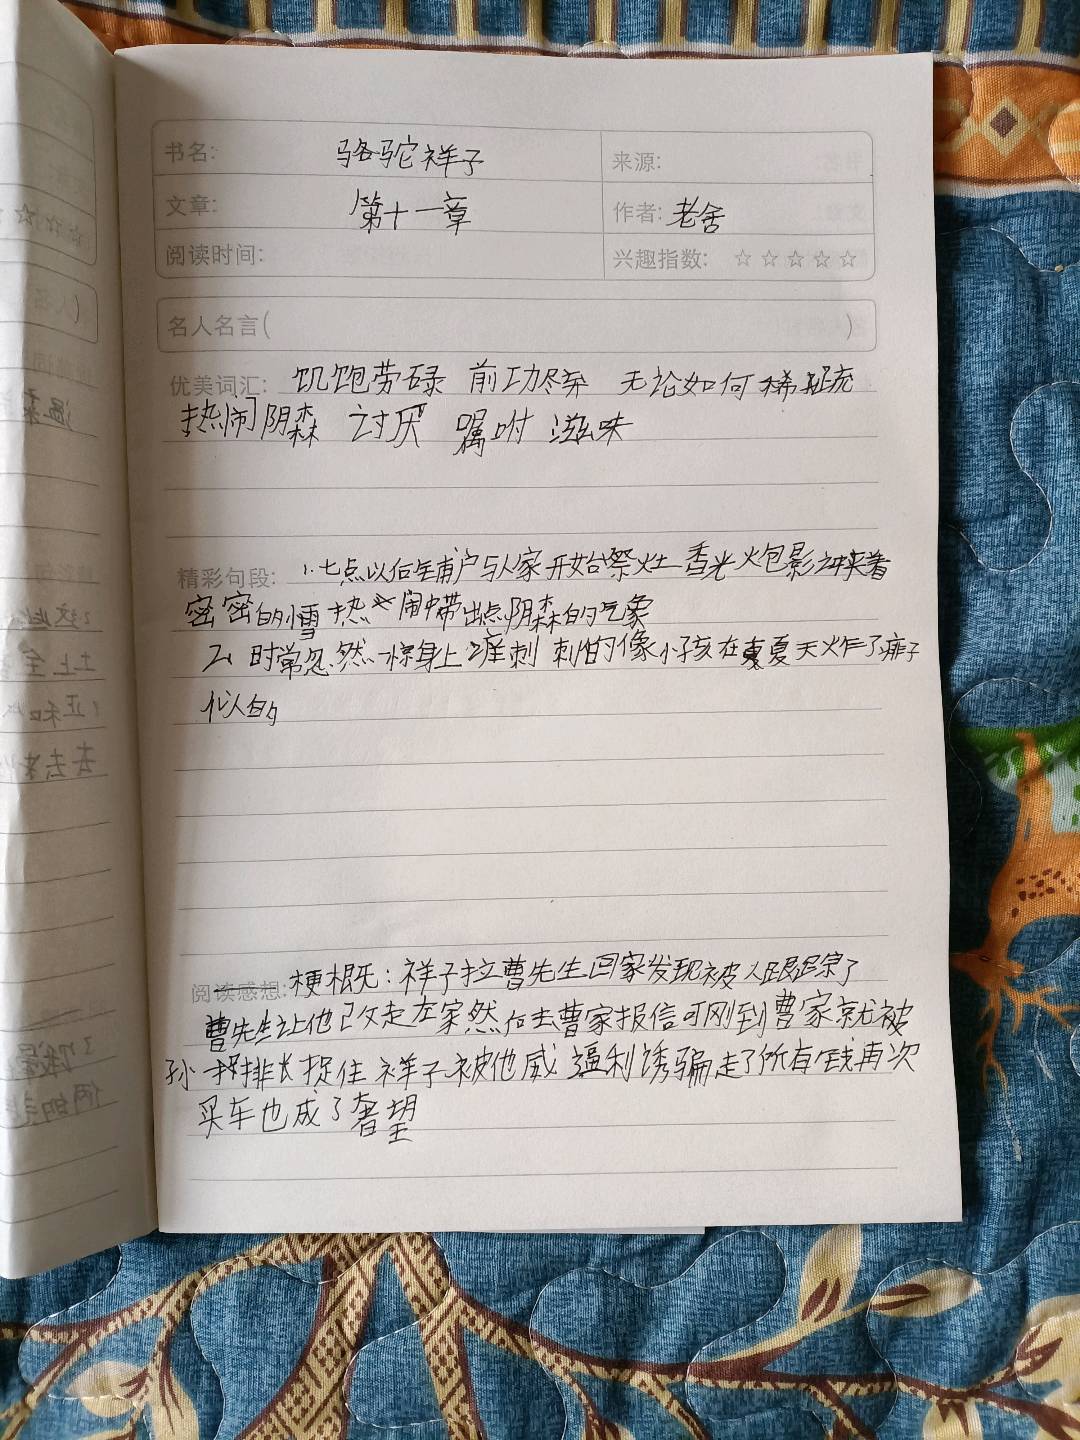 书名: 骆驼祥子 来源:
文章: 第十一章 作者: 老舍
阅读时间: 兴趣指数: ☆☆☆☆☆
名人名言( )
优美词汇: 饥饱劳碌 前功尽弃 无论如何 稀疏
热闹阴森 讨厌 嘱咐 滋味
精彩句段: 1.七点以后铺户与人家开始祭灶 香光火包影之中夹着
密密的小雪 热闹中带出点阴森的气象
2. 时常忽然一惊身上痒刺刺的像小孩在夏天炸了痱子
似的
阅读感想: 梗概: 祥子拉曹先生回家发现被人跟踪了
曹先生让他改走左家然后去曹家报信可刚到曹家就被
孙排长捉住祥子被他威逼利诱骗走了所有钱再次
买车也成了奢望